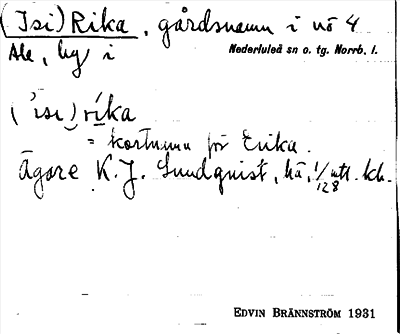 (Isi)Rika, gårdsnamn i nö 4
Ale, by i Nederluleå sn o. tg. Norrb. l.
('isi)ríka
= kortnamn för Erika.
Ägare K. J. Sundqvist, hä, 1/128 mtl. kb.
EDVIN BRÄNNSTRÖM 1931